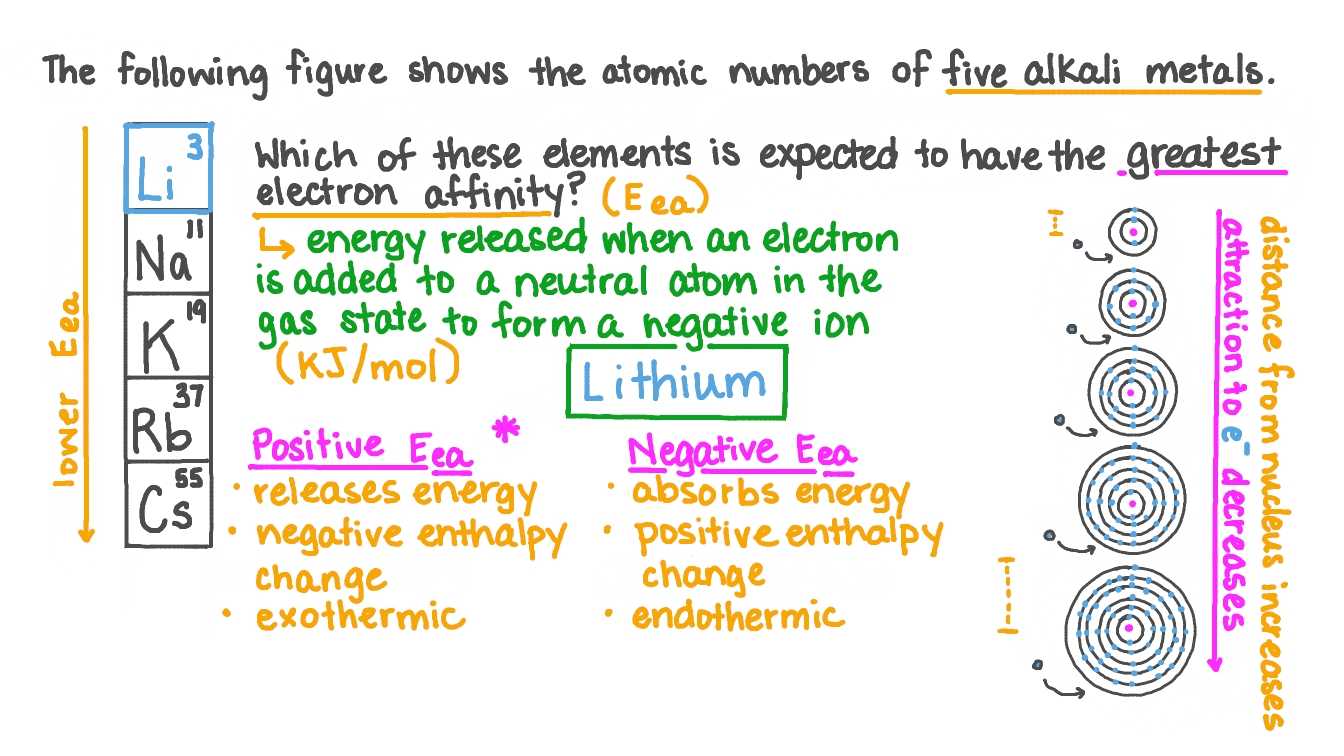 The following figure shows the atomic numbers of five alkali metals.
lower Eea
3
Li
11
Na
19
K
37
Rb
55
Cs
Which of these elements is expected to have the greatest
electron affinity? (Eea)
↳ energy released when an electron
is added to a neutral atom in the
gas state to form a negative ion
(KJ/mol)
Lithium
Positive Eea *
• releases energy
• negative enthalpy
change
• exothermic
Negative Eea
• absorbs energy
• positive enthalpy
change
• endothermic
attraction to e⁻ decreases
distance from nucleus increases